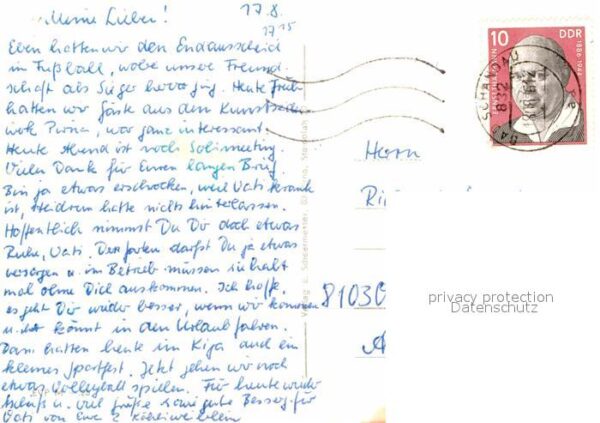 Meine Lieben!
17.8.
17¹⁵
Eben hatten wir den Endausscheid
im Fußball, wobei unsere Freund-
schaft als Sieger hervorging. Heute früh
hatten wir Gäste aus dem Kunstseiden-
werk Pirna, war ganz interessant.
Heute Abend ist noch Solimeeting.
Vielen Dank für Euren langen Brief.
Bin ja etwas erschrocken, weil Vati krank
ist, Heidrun hatte nichts hinterlassen.
Hoffentlich nimmst Du Dir doch etwas
Ruhe, Vati. Den Garten darfst Du ja etwas
versorgen u. im Betrieb müssen sie halt
mal ohne Dich auskommen. Ich hoffe,
es geht Dir wieder besser, wenn wir kommen
u. Ihr könnt in den Urlaub fahren.
Dann hatten heute im Kiga auch ein
kleines Sportfest. Jetzt gehen wir noch
etwas Volleyball spielen. Für heute wieder
Schluß u. viel Grüße sowie gute Besserg. für
Vati von Eure 2
Verlag
10
DDR
1886-1944
BAD SCHANDAU
832
18.8.76
a
Herrn
8103
privacy protection
Datenschutz